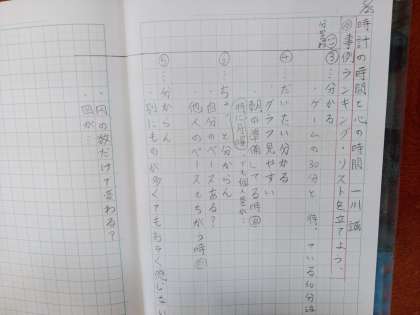 時計の時間と心の時間　一川誠
事例ランキング・リストを立てよう、
③…分かる
・ゲームの30分と待っている30分は
④…だいたい分かる
グラフ見やすい
・朝の準備してる時
②…ちょっと分からん
・自分のペースある？
他人のペースとちがう時
①…分からん
・別にものが多くてもちがく感じない
・円の数だけで変わる？
・図が…